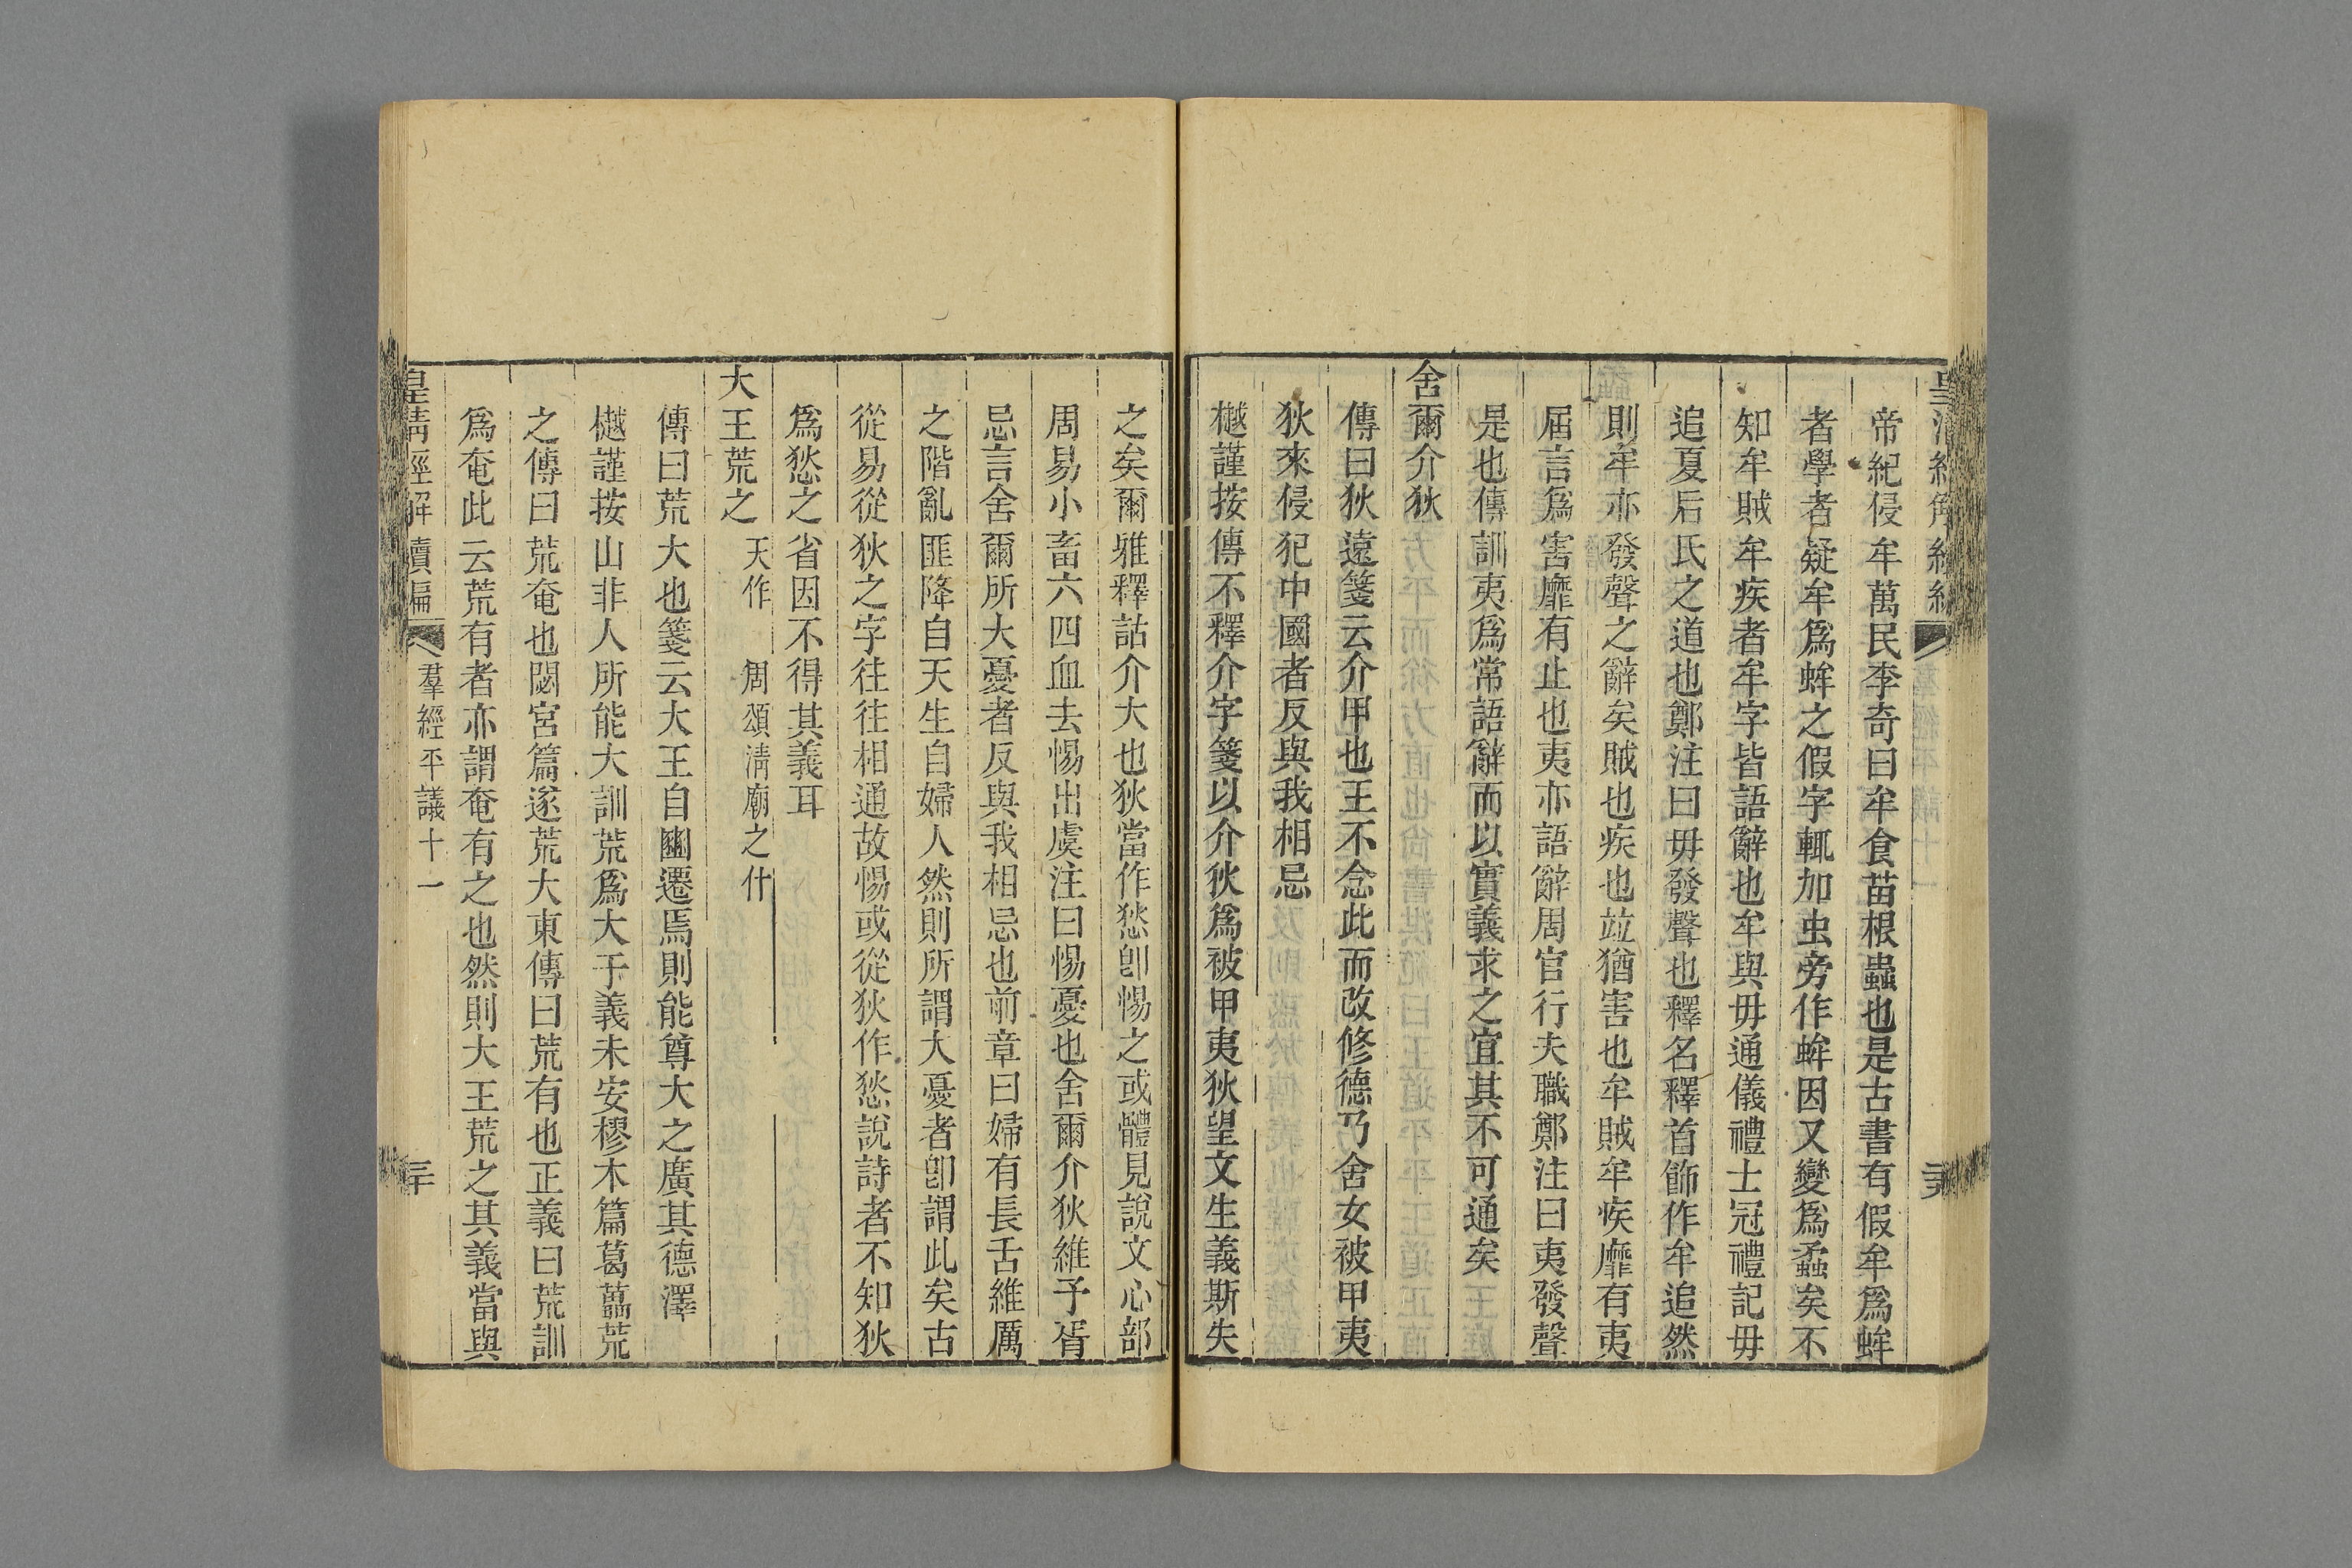 帝紀侵牟萬民李奇曰牟食苗根蟲也是古書有假牟爲蛑
者學者疑牟爲蛑之假字輒加虫旁作蛑因又變爲蟊矣不
知牟賊牟疾者牟字皆語辭也牟與毋通儀禮士冠禮記毋
追夏后氏之道也鄭注曰毋發聲也釋名釋首飾作牟追然
則牟亦發聲之辭矣賊也疾也竝猶害也牟賊牟疾靡有夷
屆言爲害靡有止也夷亦語辭周官行夫職鄭注曰夷發聲
是也傳訓夷爲常語辭而以實義求之宜其不可通矣
舍爾介狄
傳曰狄遠箋云介甲也王不念此而改修德乃舍女被甲夷
狄來侵犯中國者反與我相忌
樾謹按傳不釋介字箋以介狄爲被甲夷狄望文生義斯失
之矣爾雅釋詁介大也狄當作愁卽惕之或體見說文心部
周易小畜六四血去惕出虞注曰惕憂也舍爾介狄維予胥
忌言舍爾所大憂者反與我相忌也前章曰婦有長舌維厲
之階亂匪降自天生自婦人然則所謂大憂者卽謂此矣古
從易從狄之字往往相通故惕或從狄作愁說詩者不知狄
爲愁之省因不得其義耳
大王荒之 天作 周頌淸廟之什
傳曰荒大也箋云大王自豳遷焉則能尊大之廣其德澤
樾謹按山非人所能大訓荒爲大于義未安樛木篇葛藟荒
之傳曰荒奄也閟宮篇遂荒大東傳曰荒有也正義曰荒訓
爲奄此云荒有者亦謂奄有之也然則大王荒之其義當與
皇淸經解續編 羣經平議十一 三十